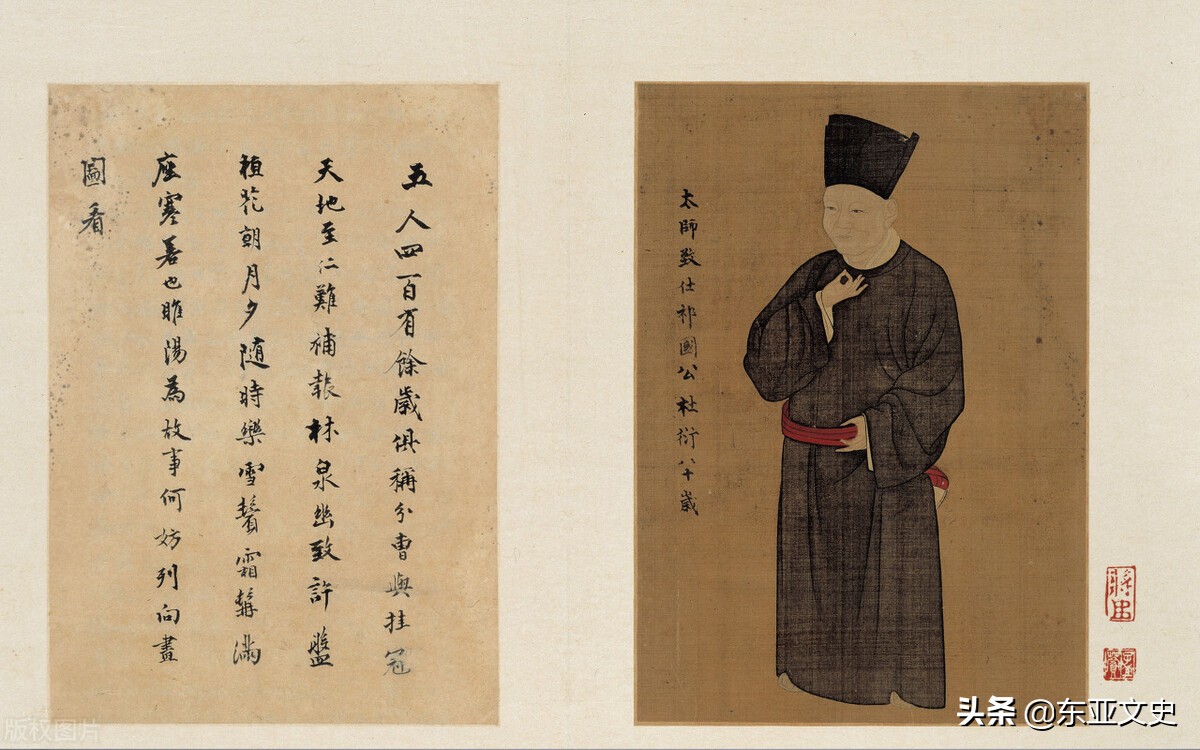 太師致仕祁國公杜衍八十歲
五人四百有餘歲俱稱分曹與挂冠
天地至仁難補報林泉幽致許盤
桓花朝月夕隨時樂雪鬢霜髯滿
座寒若也睢陽為故事何妨列向畫
圖看
头条 @东亚文史
版权图片